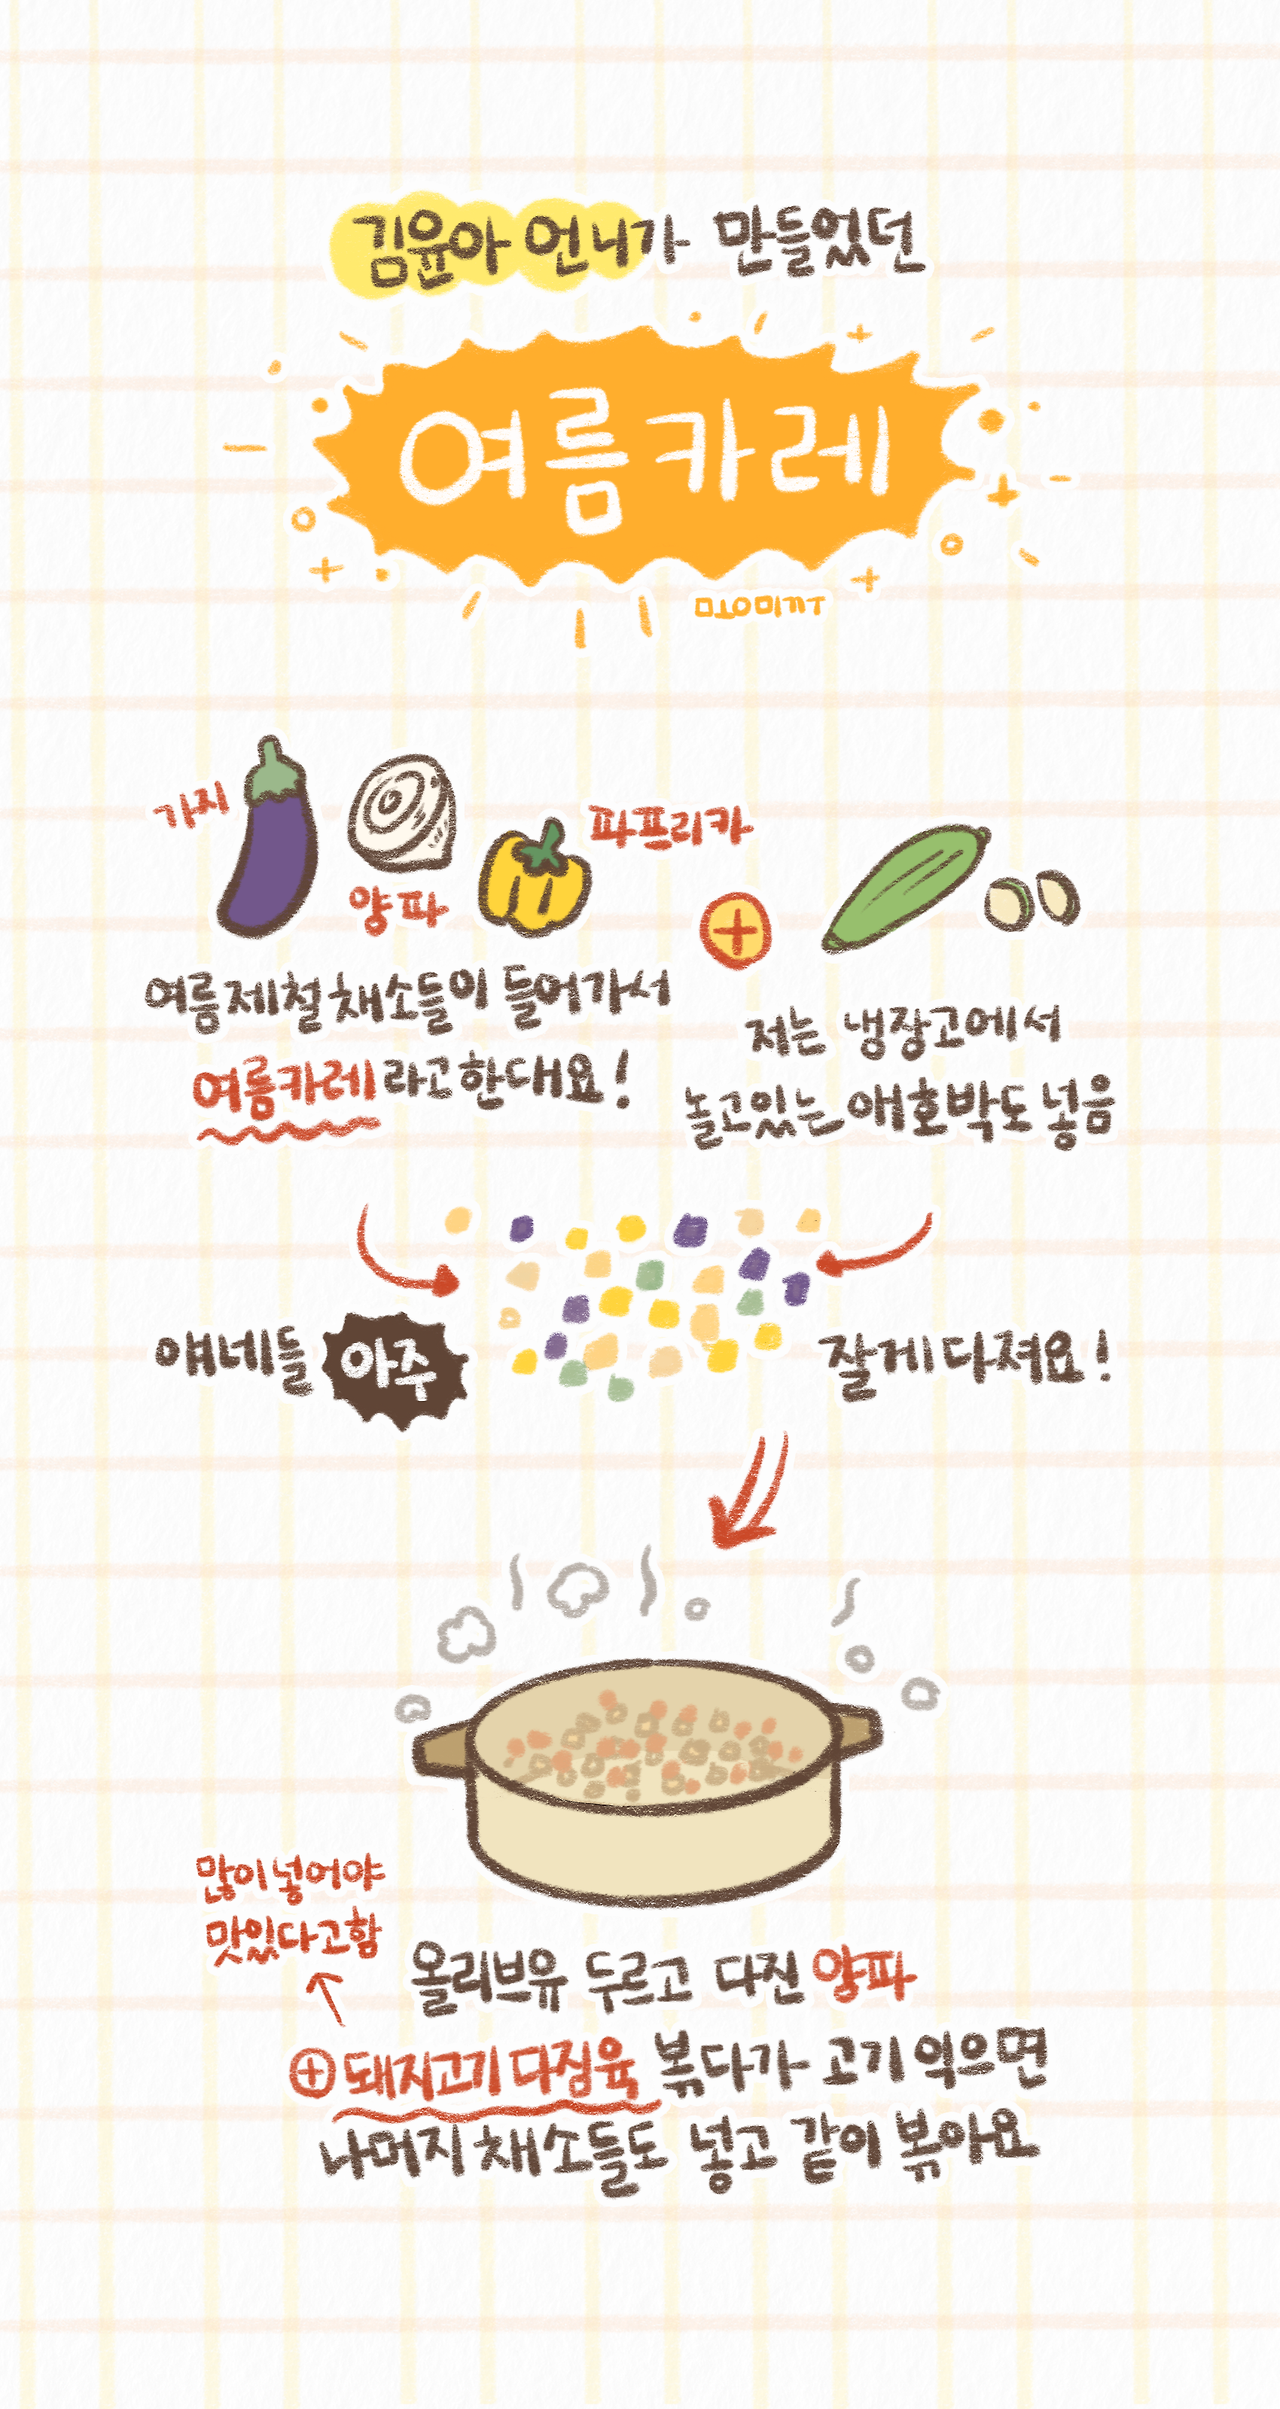 김윤아 언니가 만들었던
여름카레
가지
양파
파프리카
여름제철채소들이 들어가서
여름카레라고한대요!
저는 냉장고에서
놀고있는애호박도넣음
얘네들 아주 잘게다져요!
많이넣어야
맛있다고함
올리브유 두르고 다진 양파
돼지고기다짐육 볶다가 고기익으면
나머지 채소들도 넣고 같이 볶아요